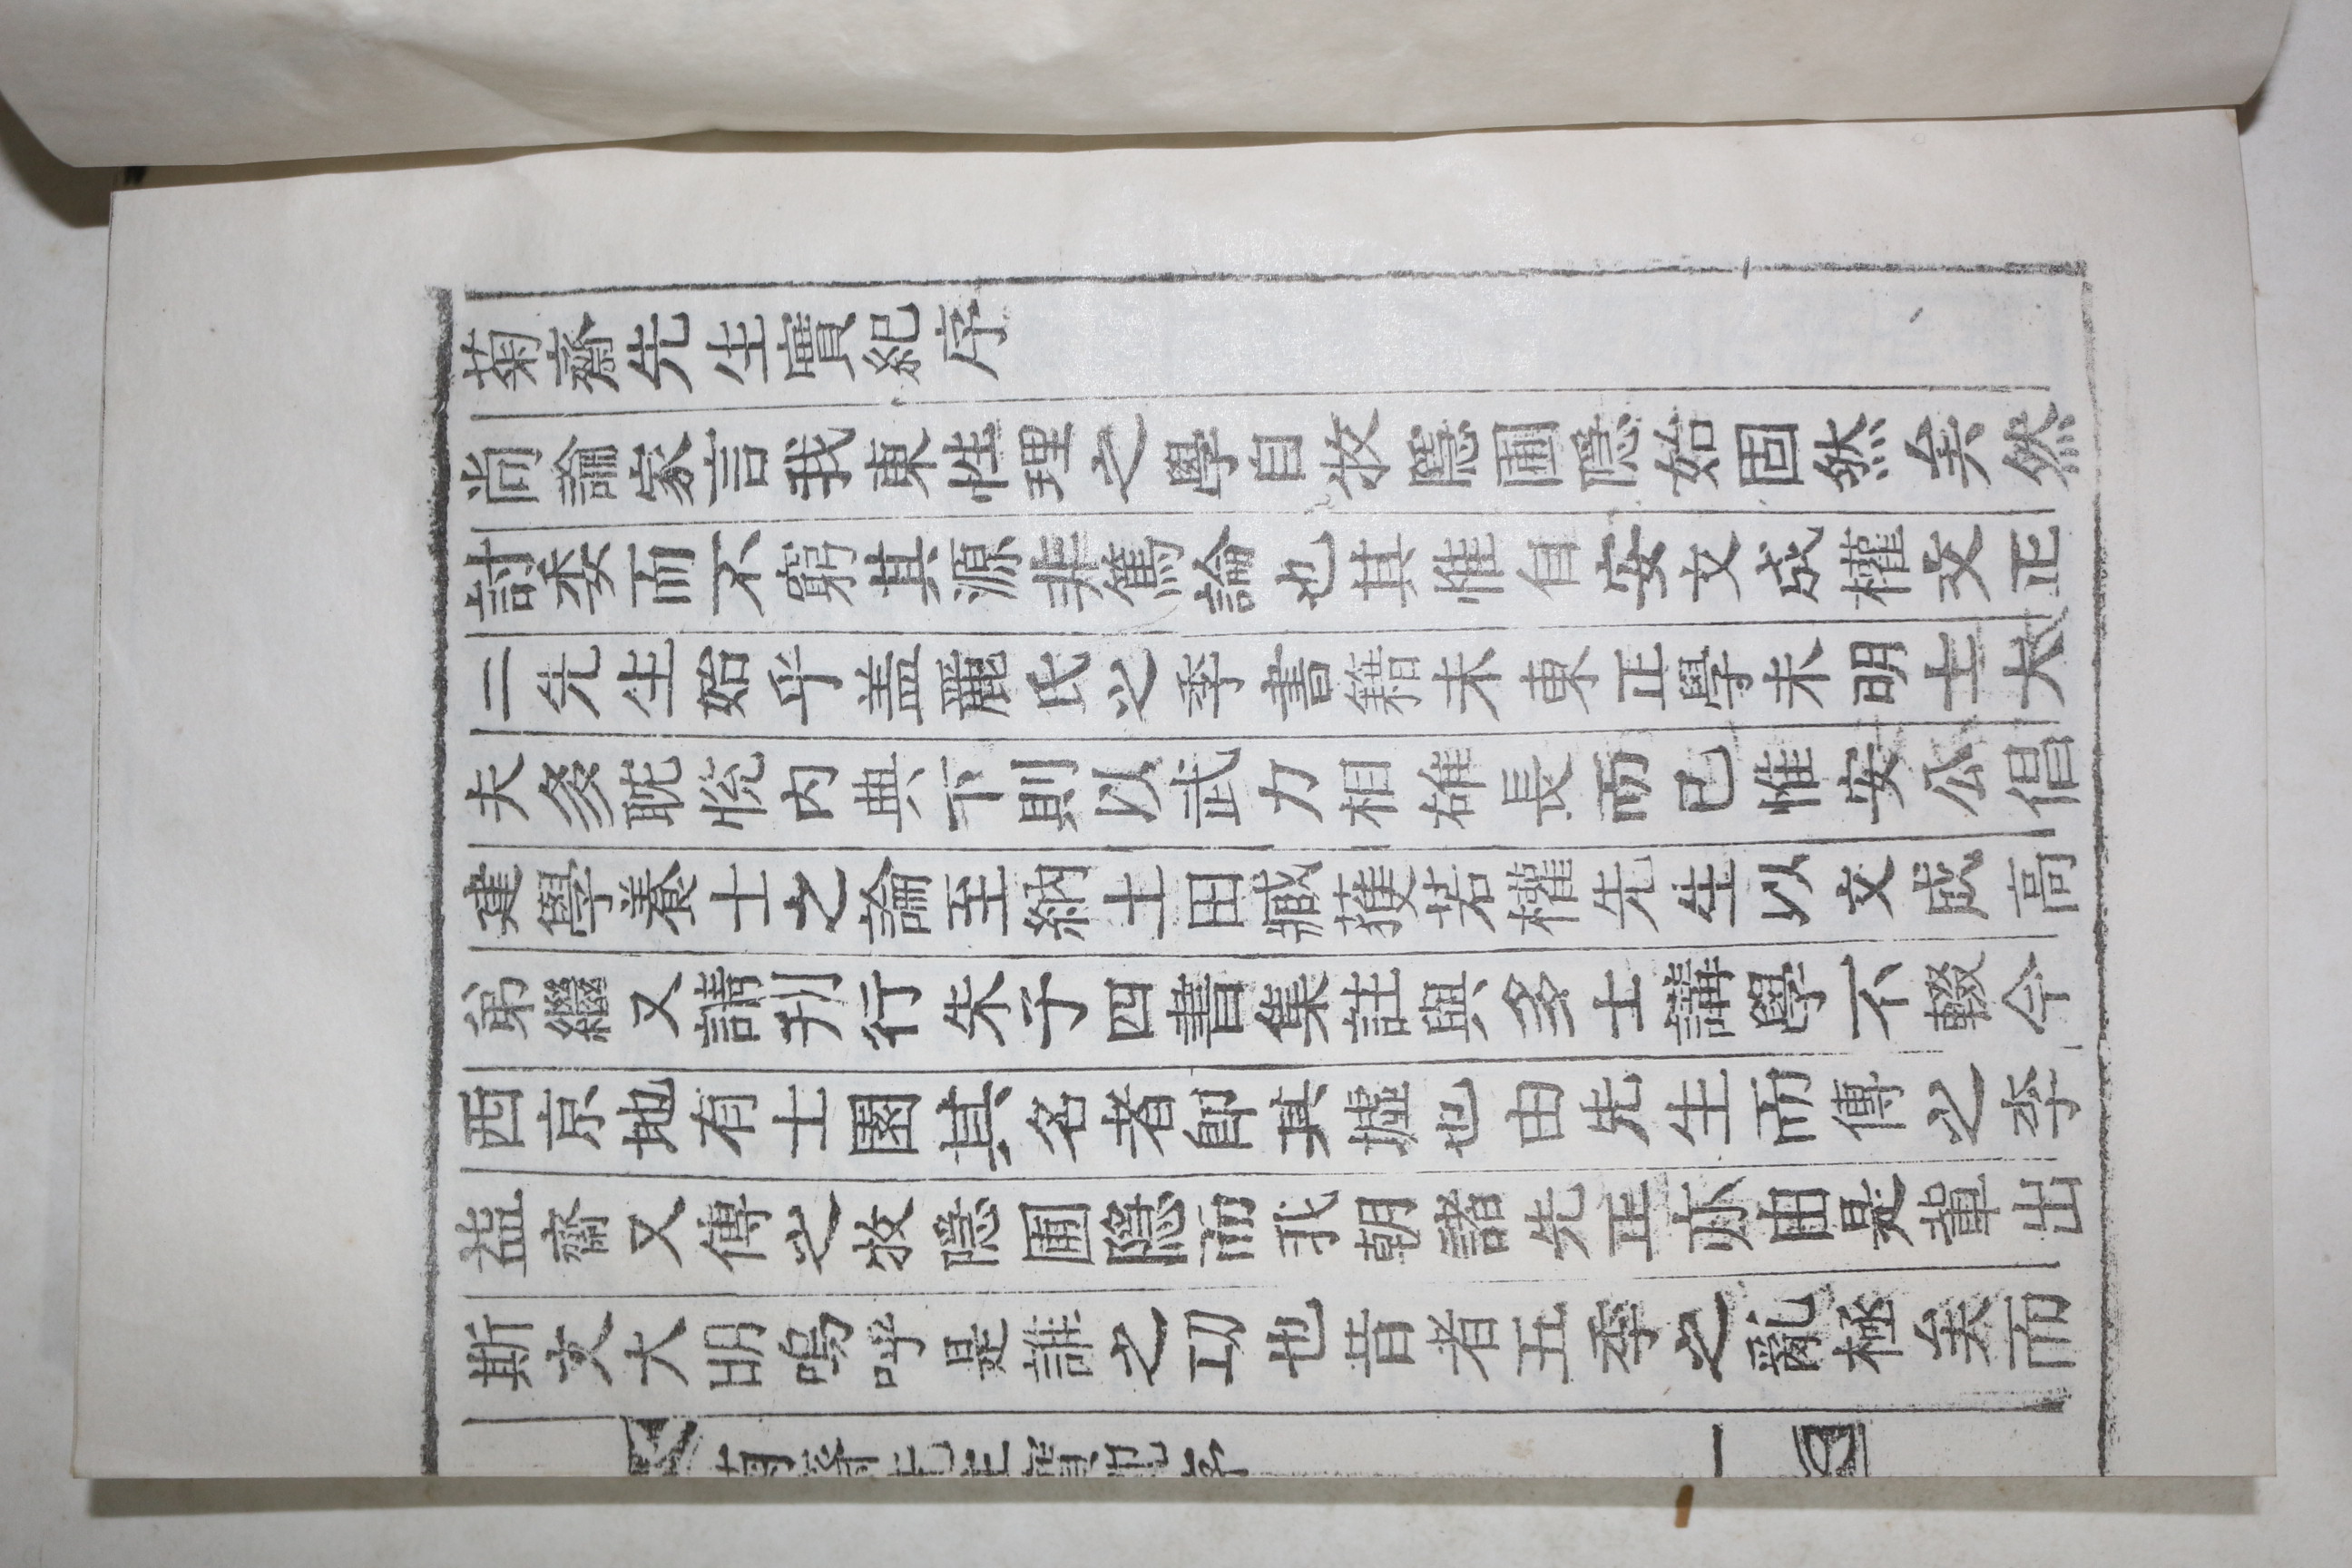 菊齋先生實紀序
尚論家言我東性理之學自牧隱圃隱始固然矣然
討委而不窮其源非篤論也其惟自安文成權文正
二先生始乎盖麗氏之季書籍未東正學未明士大
夫多耽恱内典下則以武力相雄長而已惟安公倡
建學養士之論至納土田臧獲若權先生以文成高
弟繼又請刋行朱子四書集註與多士講學不輟今
西京地有士園其名者卽其墟也由先生而傳之李
益齋又傳之牧隱圃隱而我朝諸先正亦由是輩出
斯文大明嗚呼是誰之功也昔者五季之亂極矣而
菊齋先生實紀序
一